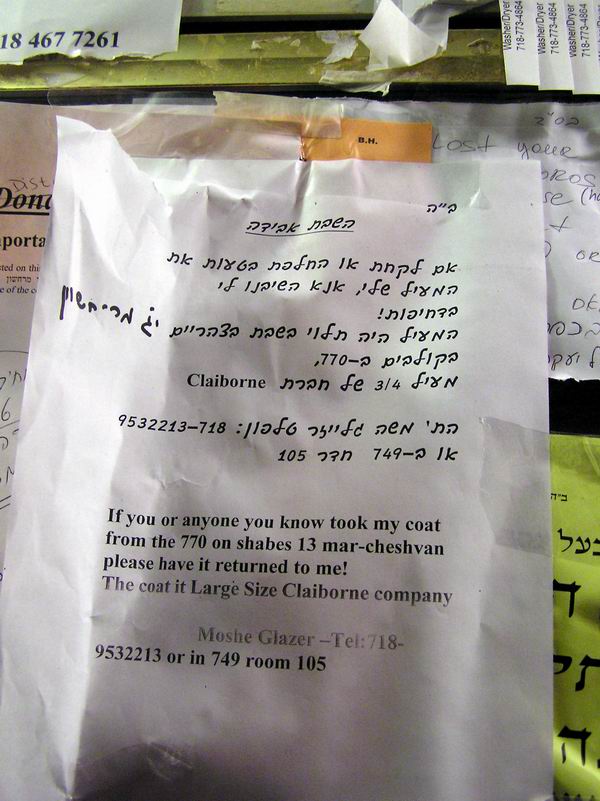 18 467 7261
Washer/Dryer
718-773-4864
Washer/Dryer
718-773-4864
Washer/Dryer
718-773-4864
Washer/Dryer
718-773-4864
B.H.
בס"ד
Lost your
ב"ה
השבת אבידה
אם לקחת או החלפת בטעות את
המעיל שלי, אנא השיבנו לי
בדחיפות!
המעיל היה תלוי בשבת בצהריים י"ג מר-חשון
בקולבים ב-770,
מעיל 3/4 של חברת Claiborne
הת' משה גלייזר טלפון: 718-9532213
או ב-749 חדר 105
If you or anyone you know took my coat
from the 770 on shabes 13 mar-cheshvan
please have it returned to me!
The coat it Large Size Claiborne company
Moshe Glazer –Tel:718-
9532213 or in 749 room 105
ב"ה